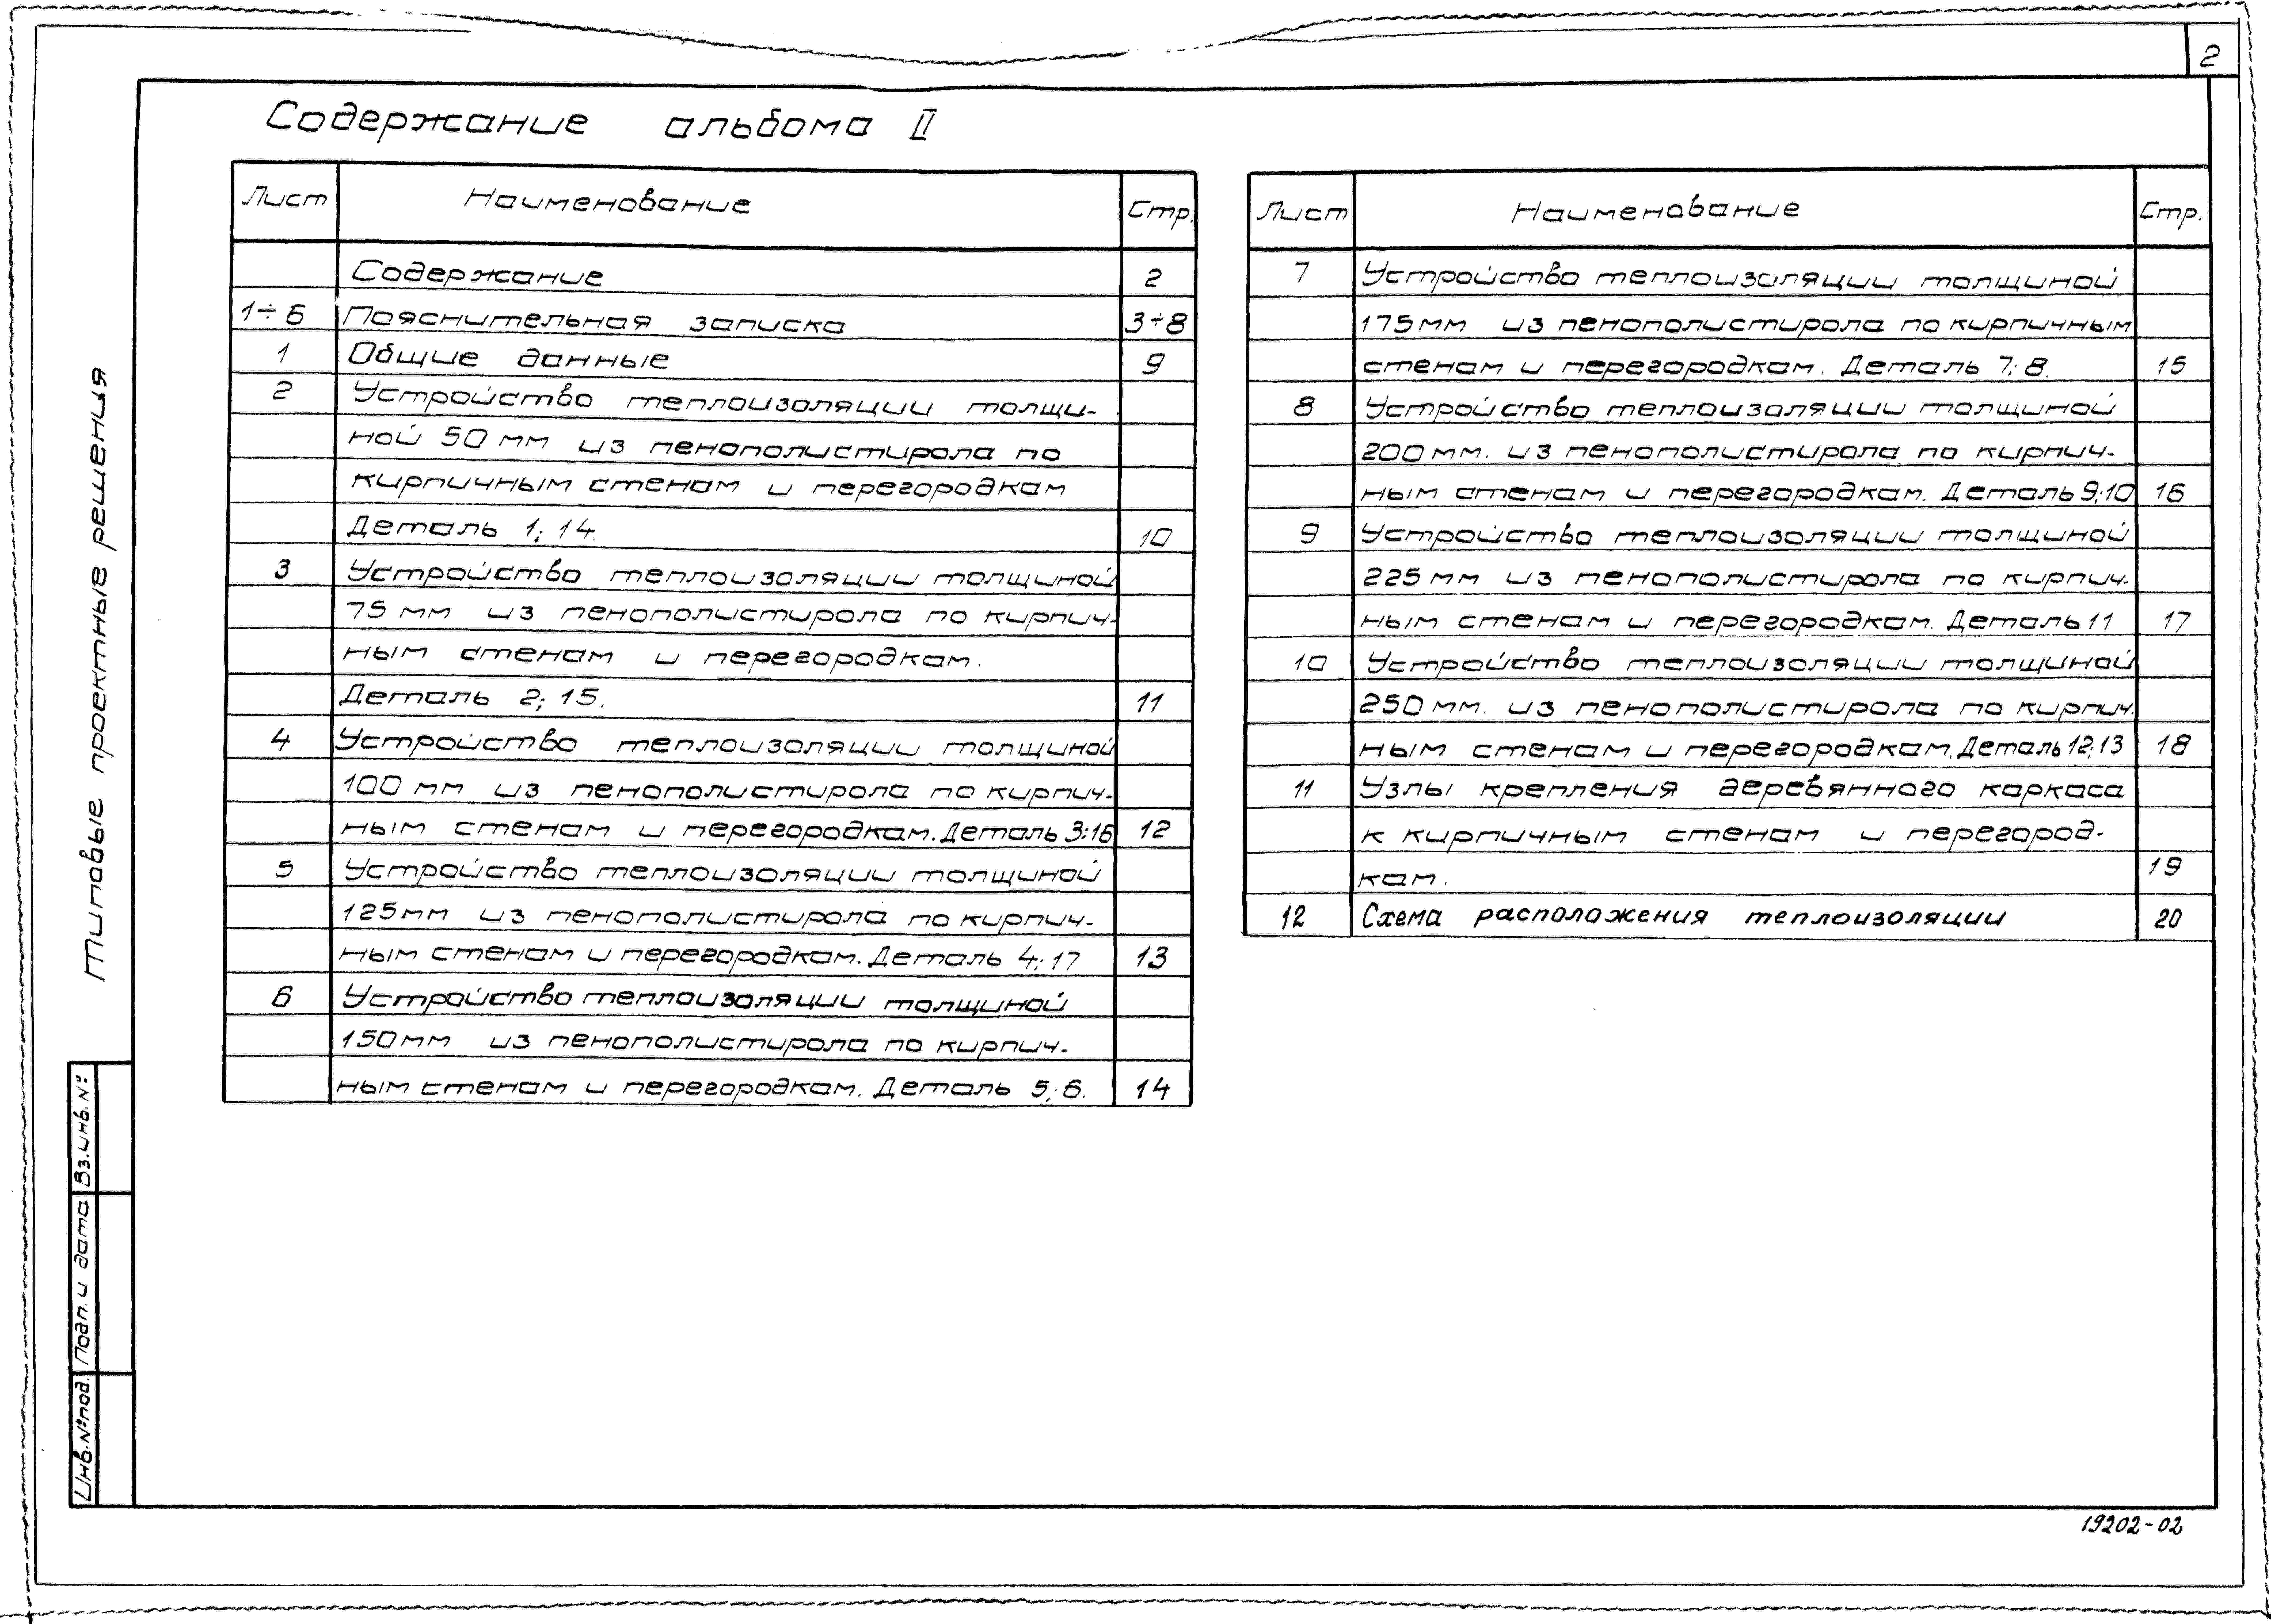 2
Содержание альбома II
Лист Наименование Стр.
Содержание 2
1÷6 Пояснительная записка 3÷8
1 Общие данные 9
2 Устройство теплоизоляции толщи-
ной 50 мм из пенополистирола по
кирпичным стенам и перегородкам
Деталь 1; 14. 10
3 Устройство теплоизоляции толщиной
75 мм из пенополистирола по кирпич-
ным стенам и перегородкам.
Деталь 2; 15. 11
4 Устройство теплоизоляции толщиной
100 мм из пенополистирола по кирпич-
ным стенам и перегородкам. Деталь 3;16 12
5 Устройство теплоизоляции толщиной
125мм из пенополистирола по кирпич-
ным стенам и перегородкам. Деталь 4; 17 13
6 Устройство теплоизоляции толщиной
150мм из пенополистирола по кирпич-
ным стенам и перегородкам. Деталь 5; 6. 14
Лист Наименование Стр.
7 Устройство теплоизоляции толщиной
175мм из пенополистирола по кирпичным
стенам и перегородкам. Деталь 7; 8. 15
8 Устройство теплоизоляции толщиной
200мм. из пенополистирола по кирпич-
ным стенам и перегородкам. Деталь 9;10 16
9 Устройство теплоизоляции толщиной
225мм из пенополистирола по кирпич-
ным стенам и перегородкам. Деталь 11 17
10 Устройство теплоизоляции толщиной
250мм. из пенополистирола по кирпич-
ным стенам и перегородкам. Деталь 12;13 18
11 Узлы крепления деревянного каркаса
к кирпичным стенам и перегород-
кам. 19
12 Схема расположения теплоизоляции 20
Типовые проектные решения
Инв.№под. Подп. и дата Вз.инв.№
19202-02